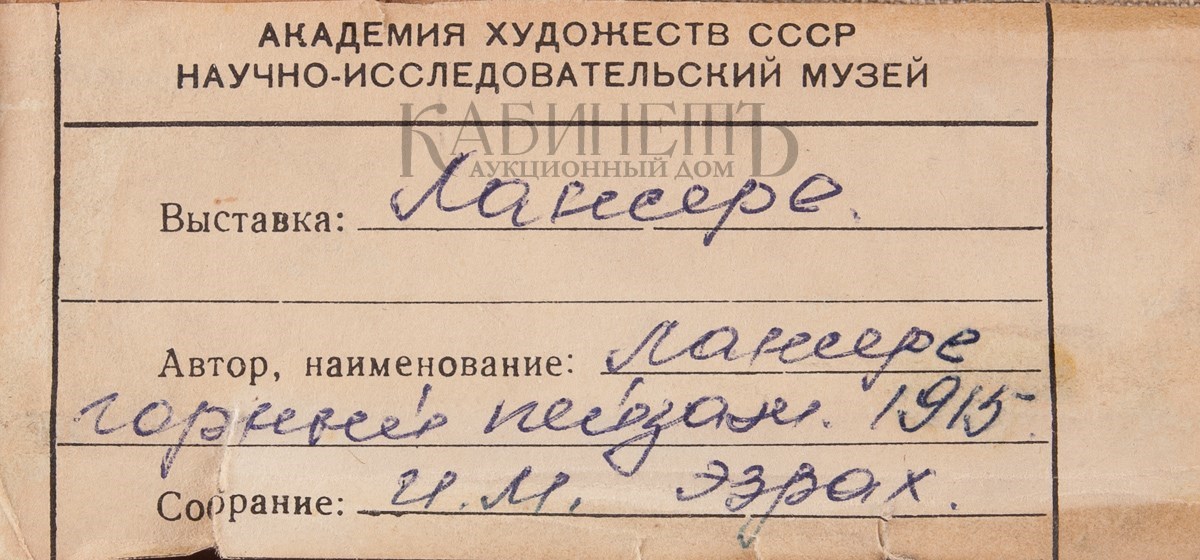 АКАДЕМИЯ ХУДОЖЕСТВ СССР
НАУЧНО-ИССЛЕДОВАТЕЛЬСКИЙ МУЗЕЙ
КАБИНЕТЪ
АУКЦИОННЫЙ ДОМ
Выставка: Лансере.
Автор, наименование: Лансере
горный пейзаж. 1915.
Собрание: И.М. Эзрах.